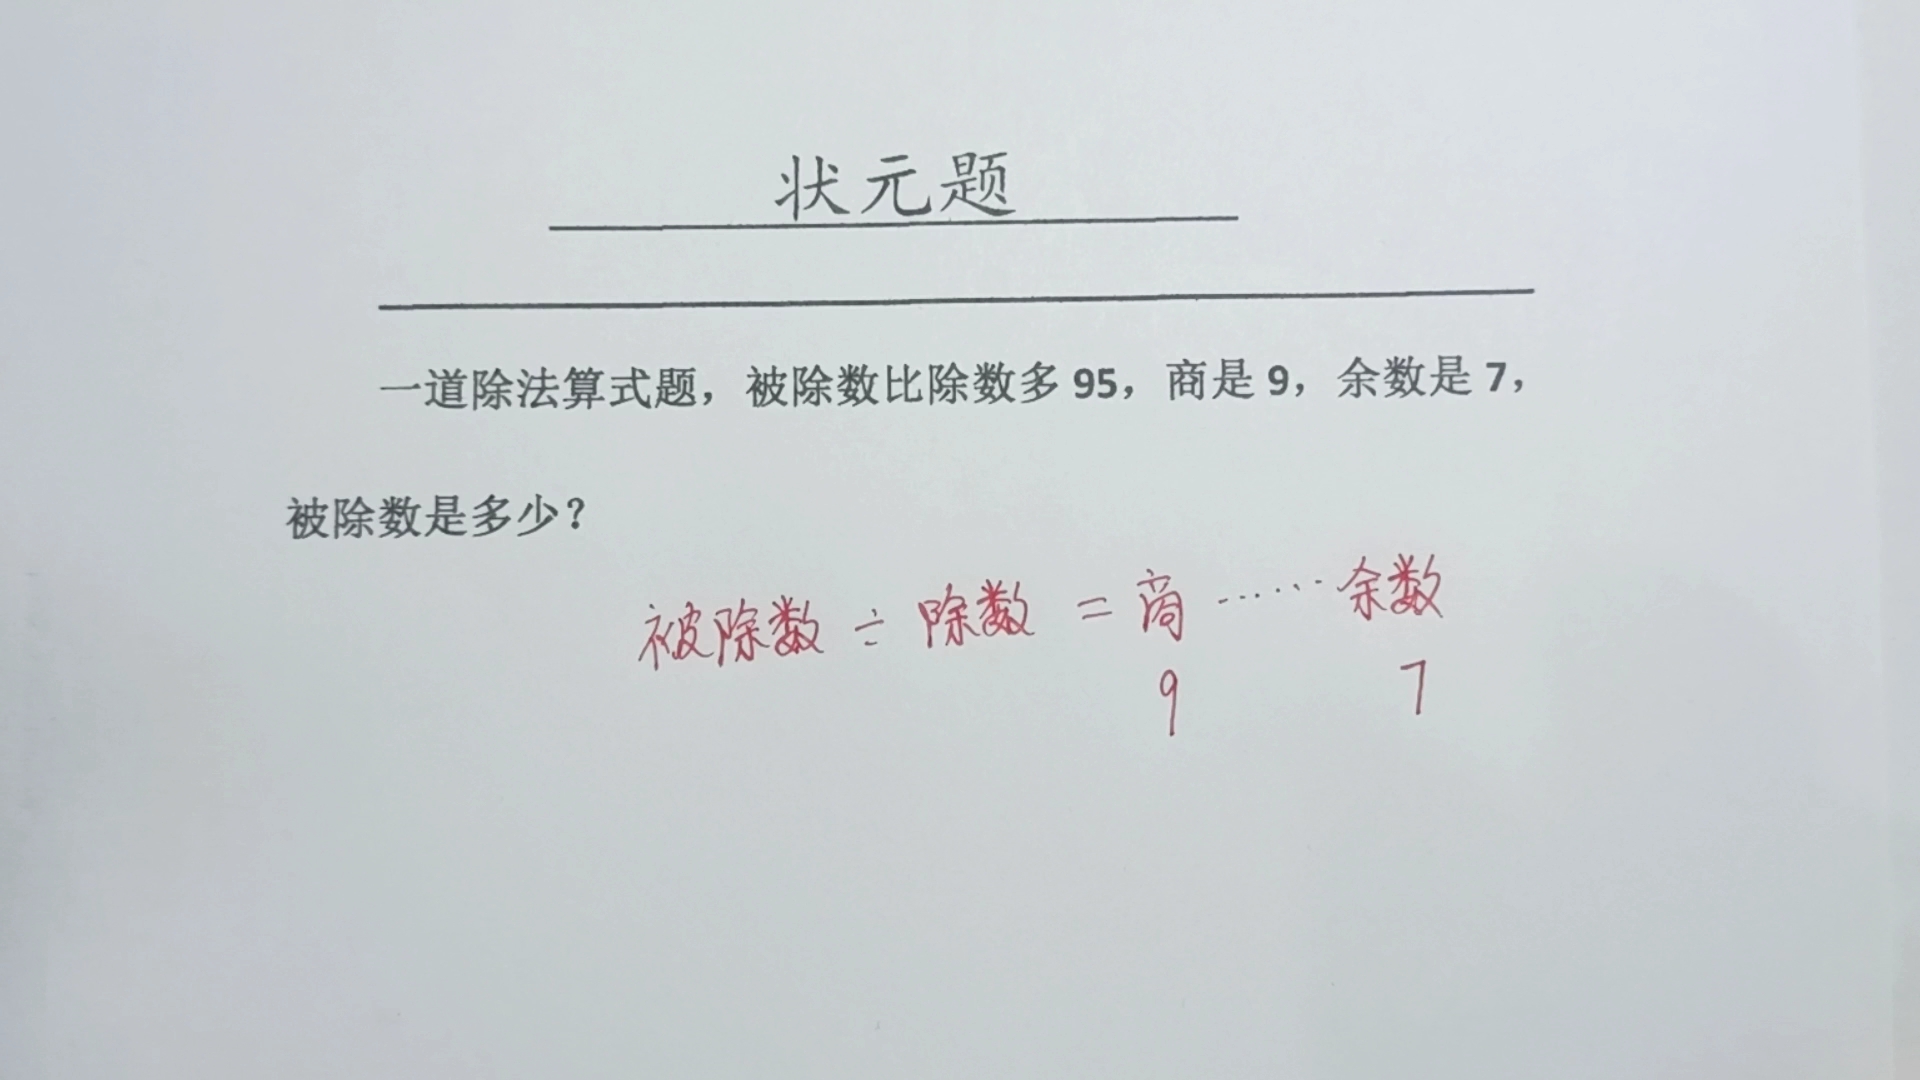 状元题
一道除法算式题，被除数比除数多95，商是9，余数是7，
被除数是多少？
被除数÷除数=商……余数
9 7